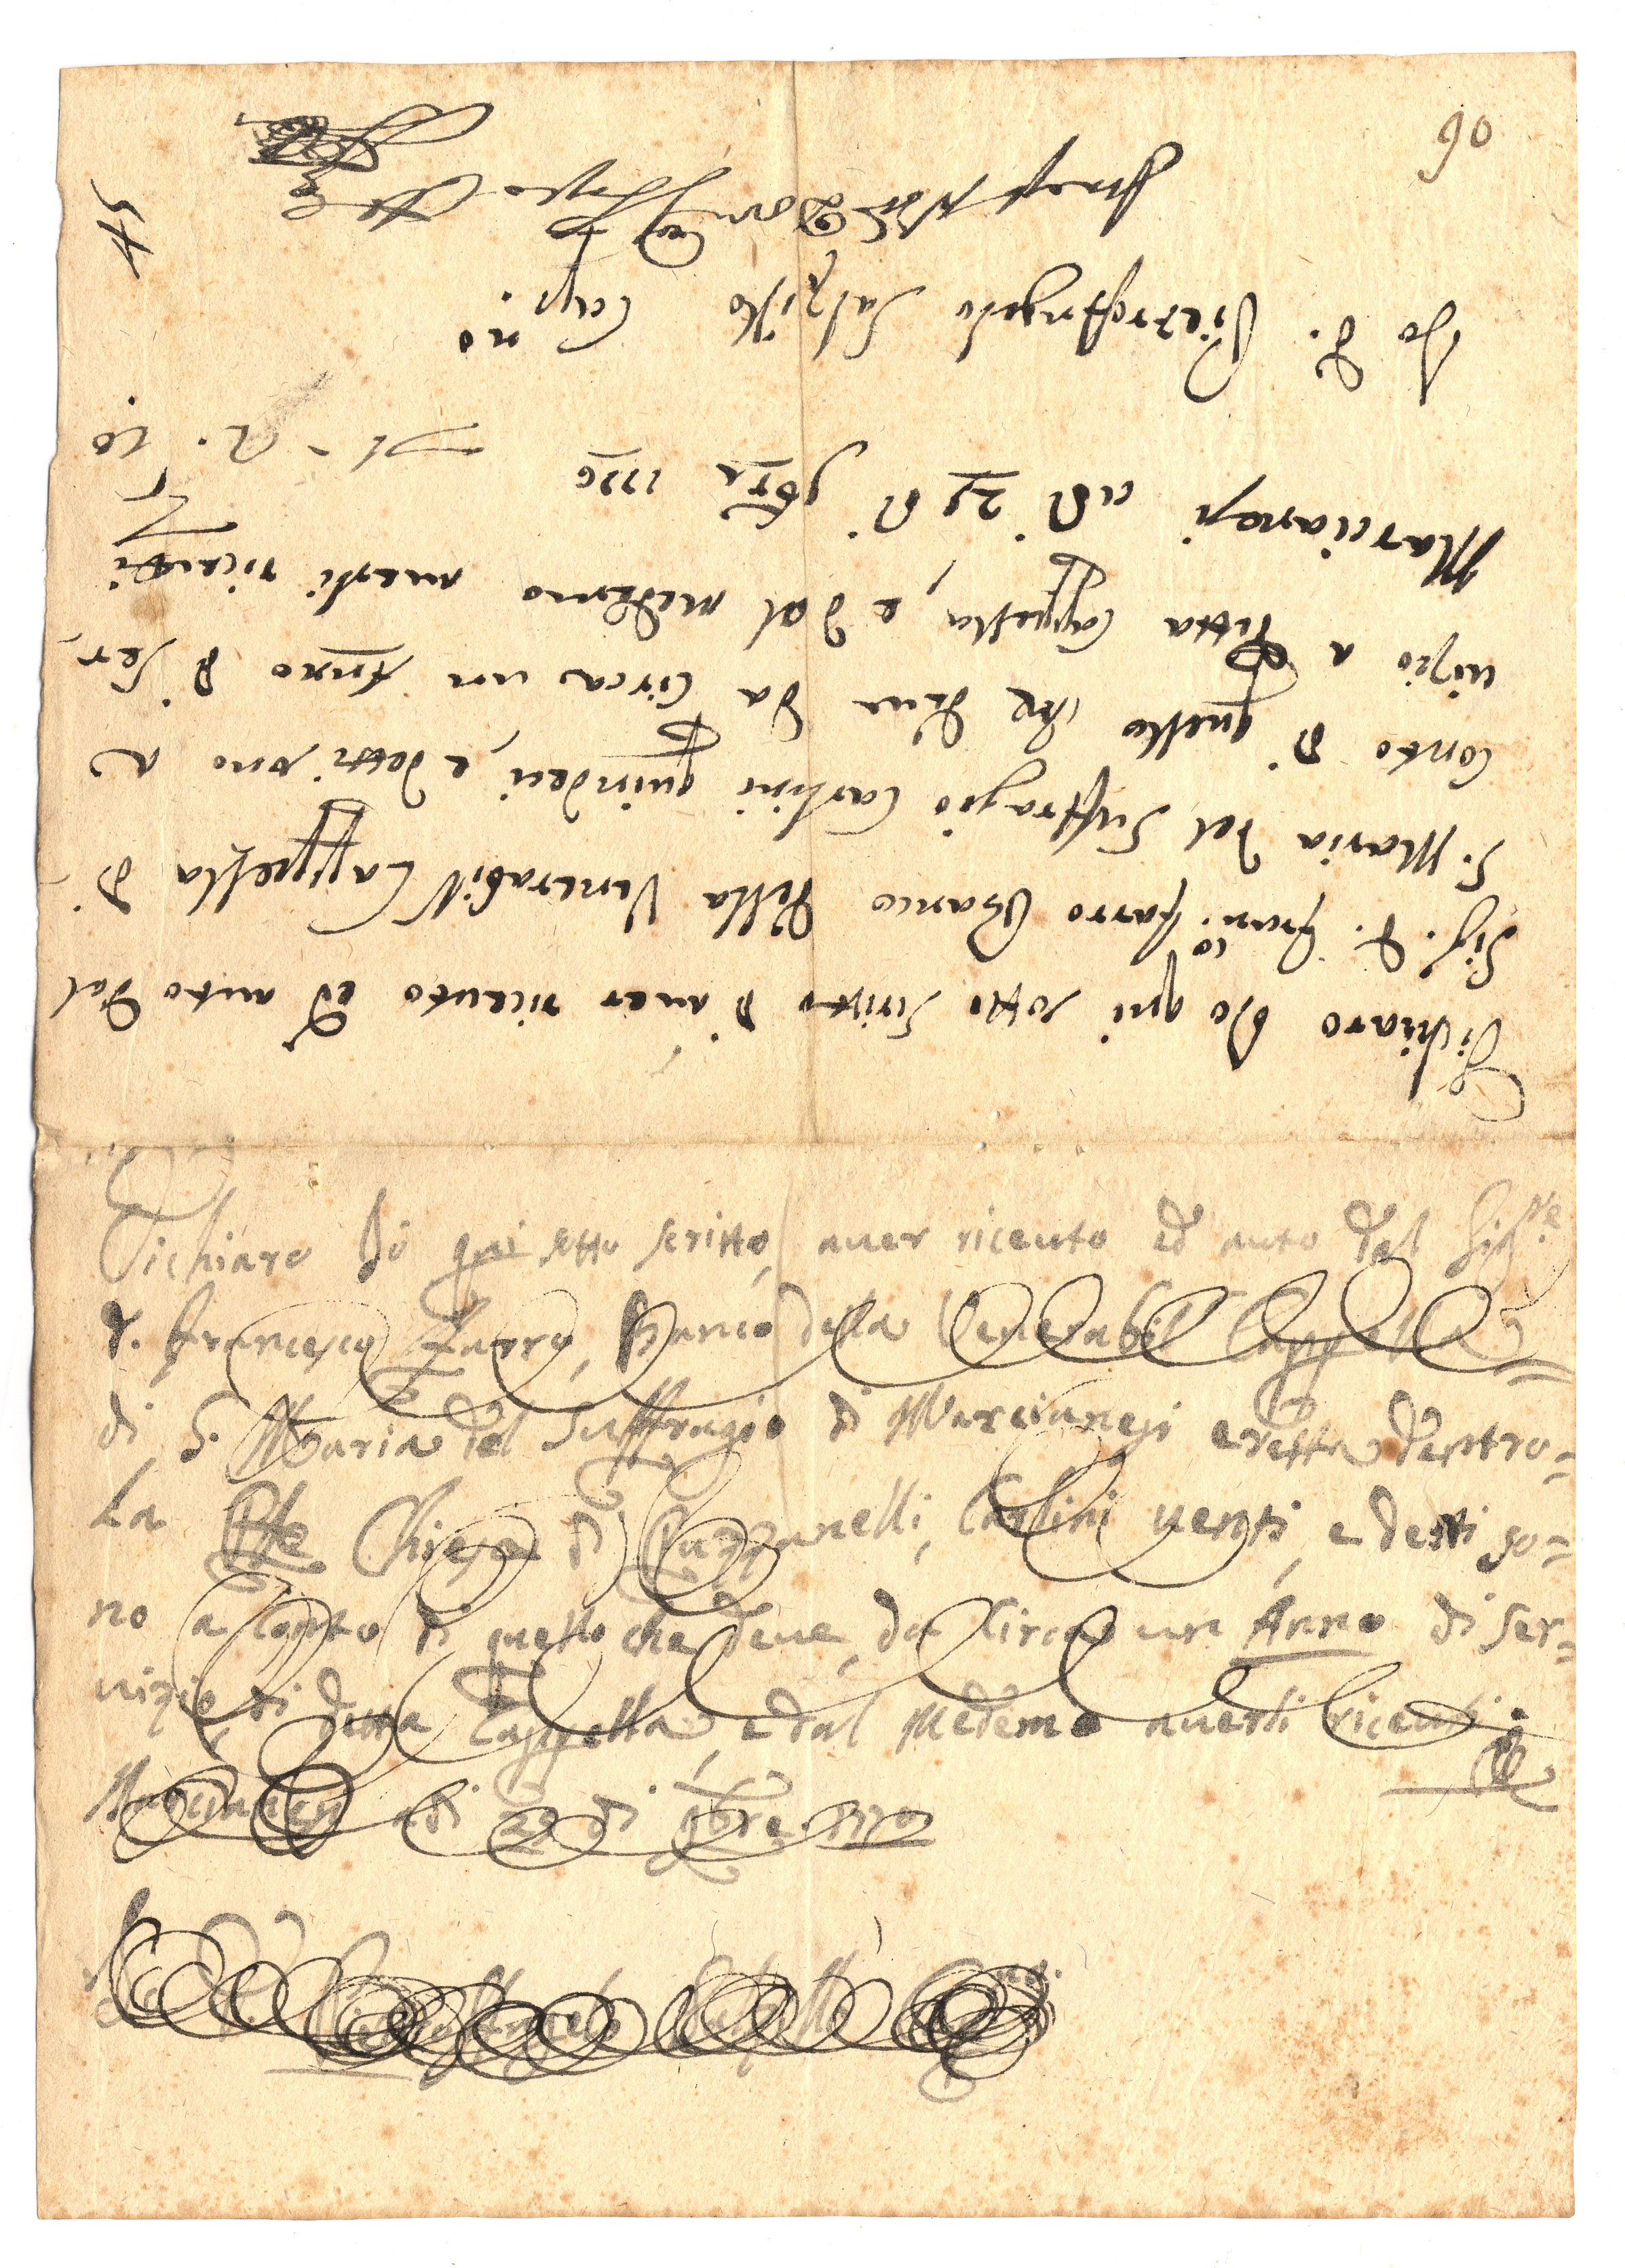 90
Dichiaro Io qui sotto scritto d'auer riceuto ed auto dal
Sig. D. Fran.co Zarro Banco della Venerabil Cappella di
S. Maria del Suffragio Carlini quindeci, e detti sono a
Conto di quello che deue da Circa un Anno di Ser-
uizio a detta Cappella, e dal medemo auerli riceuti
Marcianesi adi 29 di 9bre 1726
Io D. Pietro Angelo Salzillo Capp.no
54
Dichiaro Io qui sotto scritto, auer riceuto ed auto dal Sig.re
D. Francesco Zarro, Banco della Venerabil Cappella
di S. Maria del Suffragio di Marcianesi eretta dentro=
La Ple Chiesa di Puzzanelli, Carlini uenti, e detti so=
no a Conto di quello che deue, da Circa un Anno di Ser=
uizio di detta Cappella, e dal Medemo auerli riceuti
Marcianesi adi 29 di 9bre
Io D. Pietro Angelo Salzillo